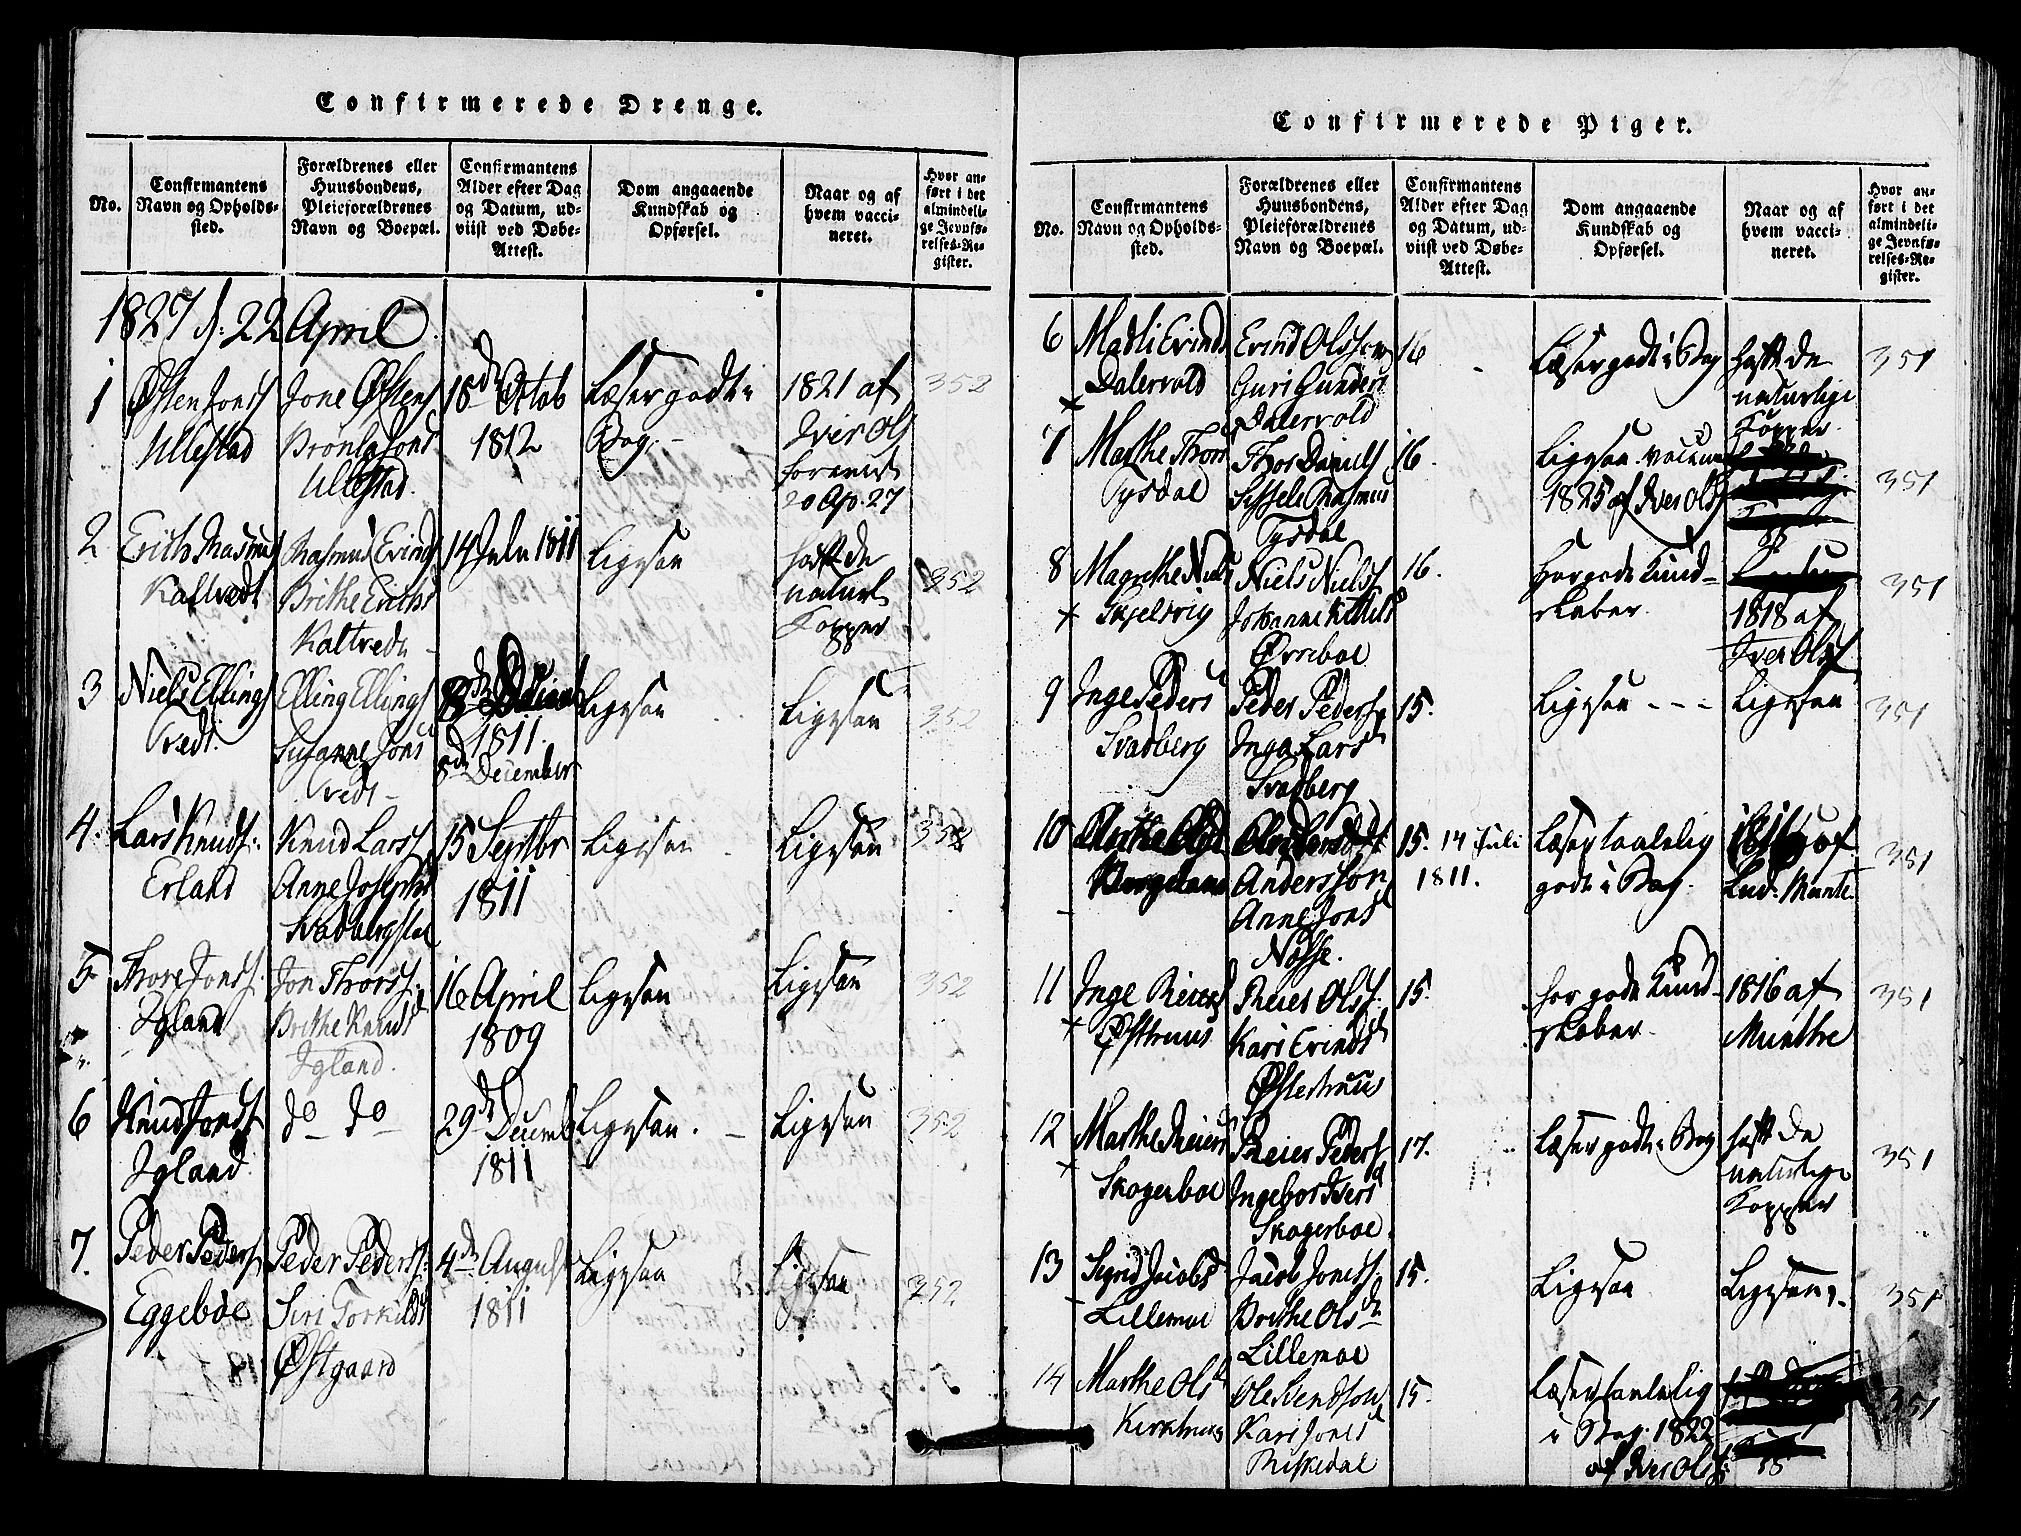 Confirmerede Drenge.
No.
Confirmantens
Navn og Opholds-
sted.
Forældrenes eller
Huusbondens,
Pleieforældrenes
Navn og Boepæl.
Confirmantens
Alder efter Dag
og Datum, ud-
viist ved Døbe-
Attest.
Dom angaaende
Kundskab og
Opførsel.
Naar og af
hvem vacci-
neret.
Hvor an-
ført i det
almindeli-
ge Jevnfø-
relses-Re-
gister.
1827 d: 22 April
1
Østen Jonss
Ullestad
Jone Østens
Jonsd
Ullestad.
18de Octob
1812
Læser godt i
Bog.
1821 af
Iver Ols
foreviist
20 Ap. 27
352
2
Erich Rasmus
Kaltvedt
Rasmus Evinds
Brithe Erichs
Kaltvedt
14 Julu 1811
Ligesaa
haft de
naturl
Kopper
352
3
Niels Ellings
Tvedt.
Elling Ellings
Susanne Jons
Tvedt
1811.
8de December
Ligesaa
Ligesaa
352
4.
Lars Knuds:
Erland
Knud Larss
Anne Josephsd
Svadbergstøl
15 Septbr
1811
Ligesaa
Ligesaa
352
5
Thore Jonss.
Igland
Jon Thorss.
Brithe Knudsd
Igland.
16 April
1809
Ligesaa
Ligesaa
352
6
Knud Jonss
Igland
do do
29de Decemb
1811
Ligesaa.
Ligesaa
352
7.
Peder Peders
Eggeboe
Peder Pederss:
Siri Torkilds
Østgaard
4de August
1811
Ligesaa
Ligesaa
352
Confirmerede Piger.
No.
Confirmantens
Navn og Opholds-
sted.
Forældrenes eller
Huusbondens,
Pleieforældrenes
Navn og Boepæl.
Confirmantens
Alder efter Dag
og Datum, ud-
viist ved Døbe-
Attest.
Dom angaaende
Kundskab og
Opførsel.
Naar og af
hvem vacci-
neret.
Hvor an-
ført i det
almindeli-
ge Jevnfø-
relses-Re-
gister.
6
Madli Evinds
Dalervold
Evind Olsson
Guri Gunders
Dalervold
16
Læser godt i Bog
haft de
naturlige
Kopper.
351
7
Marthe Thors
Tysdal
Thor Daniels
Sissele Rasmus
Tysdal
16.
Ligesaa. vaccine
1825 af Iver Ols
351
8
Magrethe Niels
Skjelbrig
Niels Nielss
Johanne Kittels
Ørreboe
16.
Har gode Kund-
skaber.
1818 af
Iver Ols
351
9
Inge Peders
Svadberg
Peder Peders
Inga Larsd
Svadberg
15.
Ligesaa
Ligesaa
351
10
Andersson
Anne Jonsd
Nøsse.
15. 14 Juli
1811.
Læser taalelig
godt i Bog.
af
Lud: Munte
351
11
Inge Reiers
Østhuus
Reier Olss.
Kari Evindsd
Østerhuus
15.
har gode Kund-
skaber.
1816 af
Munthe
351
12
Marthe Reiers
Skogerboe
Reier Peders
Ingebor Ivers
Skogerboe.
17.
Læser godt i Bog
haft de
naturlige
Kopper
351
13
Sigrid Jacobs
Lillemoe
Jacob Jonss.
Brithe Olsd
Lillemoe
15.
Ligesaa
Ligesaa.
351
14
Marthe Olsd
Kirkhuus
Ole Svendson
Kari Jonsd
Riskedal
15.
Læser taalelig
i Bog. 1822
af Iver Ols
351